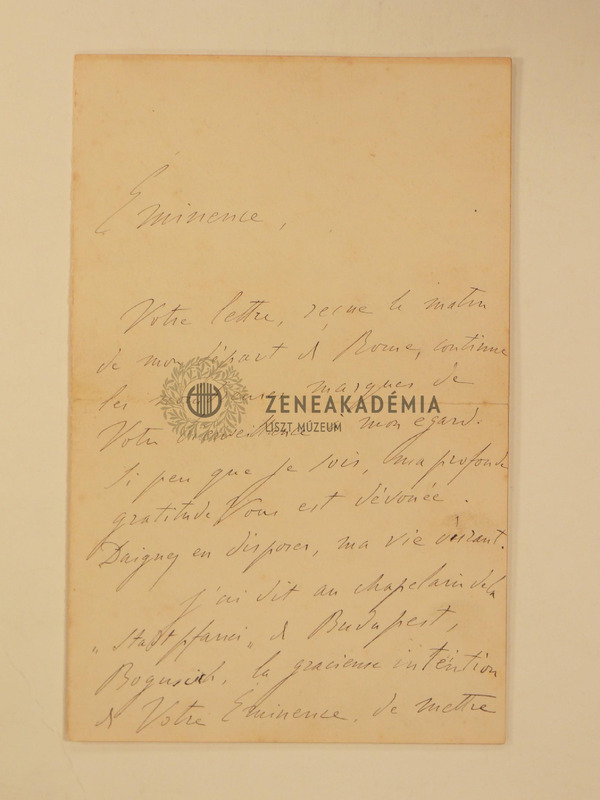 Eminence,
Votre lettre, reçue le matin
de mon départ de Rome, continue
les marques de
Votre à mon égard.
Si peu que je sois, ma profonde
gratitude Vous est dévouée.
Daignez en disposer, ma vie durant.
J'ai dit au chapelain de la
„Stadtpfarrei„ de Budapest,
la gracieuse intention
de Votre Eminence, de mettre
ZENEAKADÉMIA
LISZT MÚZEUM